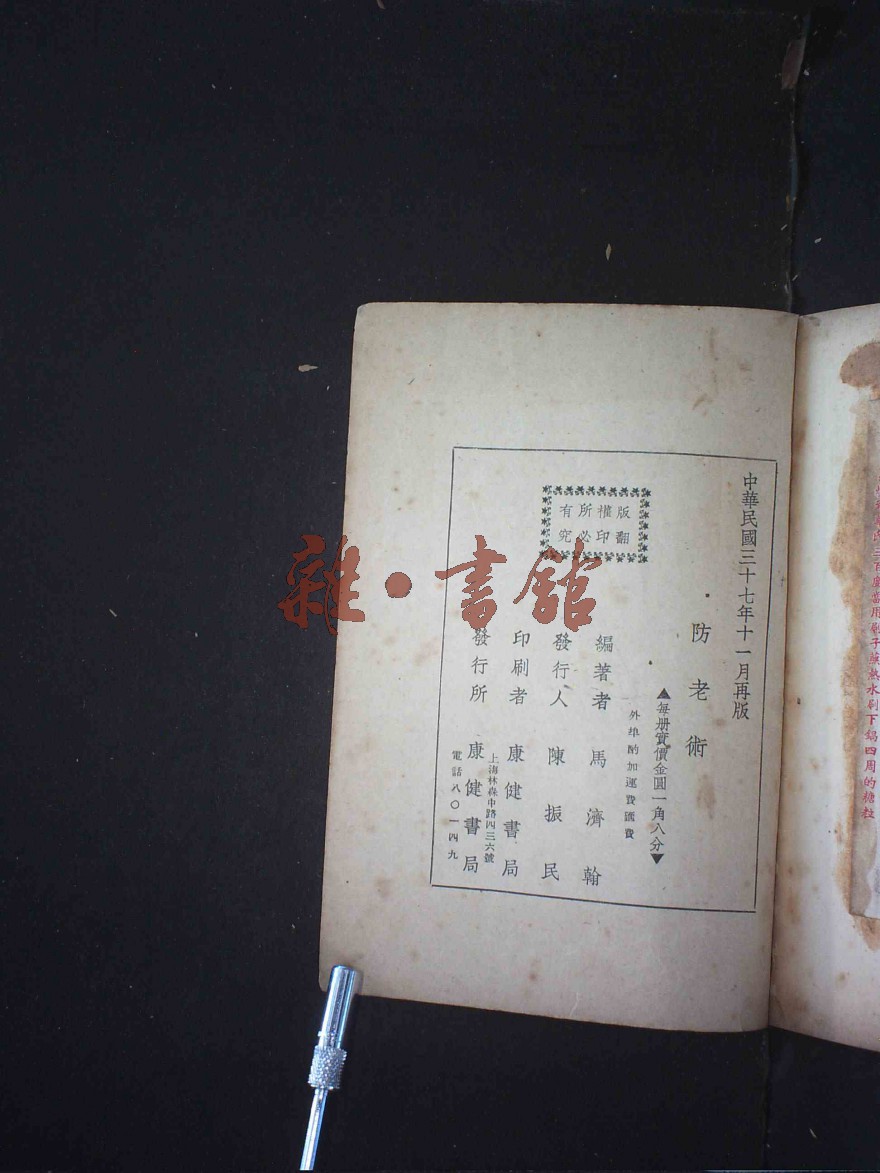 中華民國三十七年十一月再版
防老術
▲每册實價金圓一角八分▼
外埠酌加運費匯費
版權所有
翻印必究
編著者 馬濟翰
發行人 陳振民
印刷者 康健書局
上海林森中路四三六號
發行所 康健書局
電話八〇一四九
雜·書館
百度當用刷子蘸熱水刷下鍋四周的糖粒